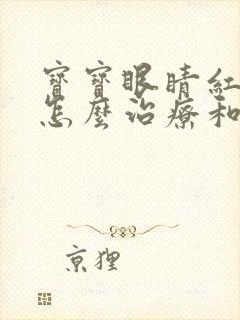 寶寶眼睛紅
怎麼治療和
京狸